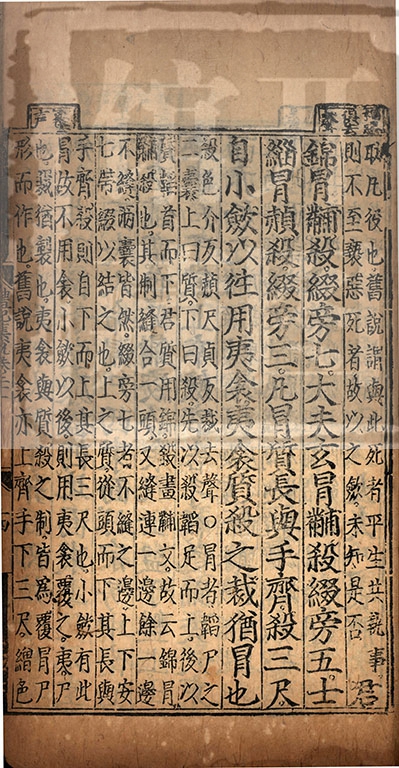 取凡後也舊說謂與此死者平生共執事
則不至褻惡死者故以之歛未知是否君
錦冒黼殺綴旁七大夫玄冒黼殺綴旁五士
緇冒赬殺綴旁三凡冒質長與手齊殺三尺
自小歛以往用夷衾夷衾質殺之裁猶冒也
殺色介反赬尺貞反裁去聲○冒者韜尸之
二囊上曰質下曰殺先以殺韜足而上後以
質韜首而下君質用錦殺畫黼文故云錦冒
黼殺也其制縫合一頭又縫連一邊餘一邊
不縫兩囊皆然綴旁七者不縫之邊上下安
七帶綴以結之也上之質從頭而下其長與
手齊殺則自下而上其長三尺也小歛有此
冒故不用衾小歛以後則用夷衾覆之夷尸
也裁猶製也夷衾與質殺之制皆為覆冒尸
形而作也舊說夷衾亦上齊手下三尺繒色